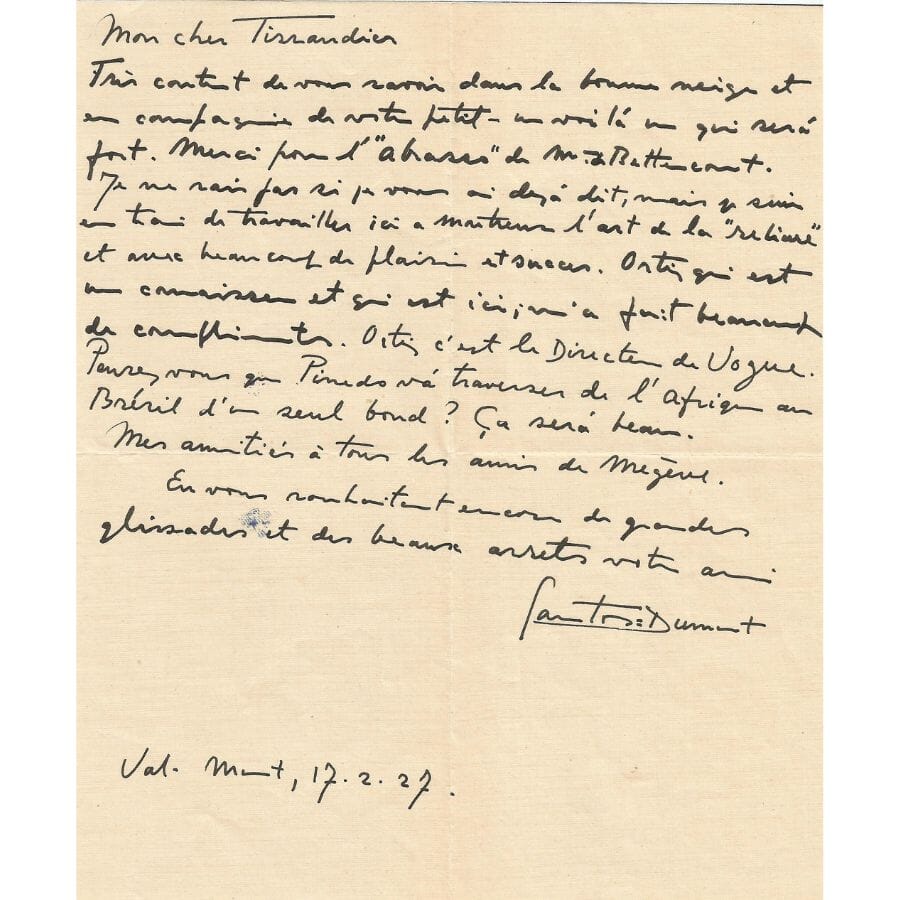 Mon cher Tissandier
Très content de vous savoir dans la bonne neige et
en compagnie de votre petit - en voilá un qui será
fort. Merci pour l'"Abrasso" de M. de Bettencourt.
Je ne sais pas si je vous ai dejá dit, mais je suis
en train de travailler ici a Montreux l'art de la "reliure"
et avec beaucoup de plaisir et succes. Ortiz qui est
un connaisseur et qui est ici, m'a fait beaucoup
de compliments. Ortiz c'est le Directeur de Vogue.
Pensez vous que Pinedo vá traverser de l'Afrique au
Brézil d'un seul bond? Ça será beau.
Mes amitiés à tous les amis de Megève.
En vous souhaitant encore de grandes
glissades et des beaux arrets votre ami
Santos=Dumont
Val-Mont, 17.2.27.